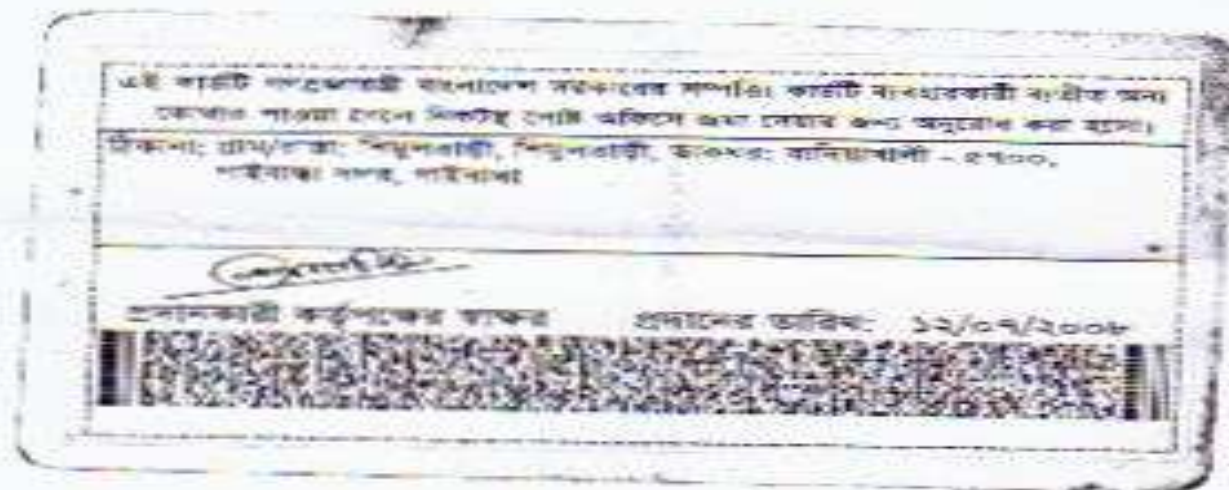 এই কার্ডটি গণপ্রজাতন্ত্রী বাংলাদেশ সরকারের সম্পত্তি। কার্ডটি ব্যবহারকারী ব্যতীত অন্য
কোথাও পাওয়া গেলে নিকটস্থ পোষ্ট অফিসে জমা দেবার জন্য অনুরোধ করা হলো।
ঠিকানা: গ্রাম/রাস্তা: শিমুলবাড়ী, শিমুলবাড়ী, ডাকঘর: বাদিয়াখালী - ৫৭০০,
গাইবান্ধা সদর, গাইবান্ধা
প্রদানকারী কর্তৃপক্ষের স্বাক্ষর প্রদানের তারিখ: ১২/০৭/২০০৮